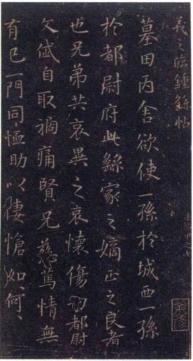 羲之臨鍾繇帖
墓田丙舍欲使一孫於城西一孫
於都尉府此繇家之嫡正之良者
也兄弟共哀異之哀懷傷切都尉
文岱自取禍痛賢兄慈篤情無
有已一門同恤助以悽愴如何